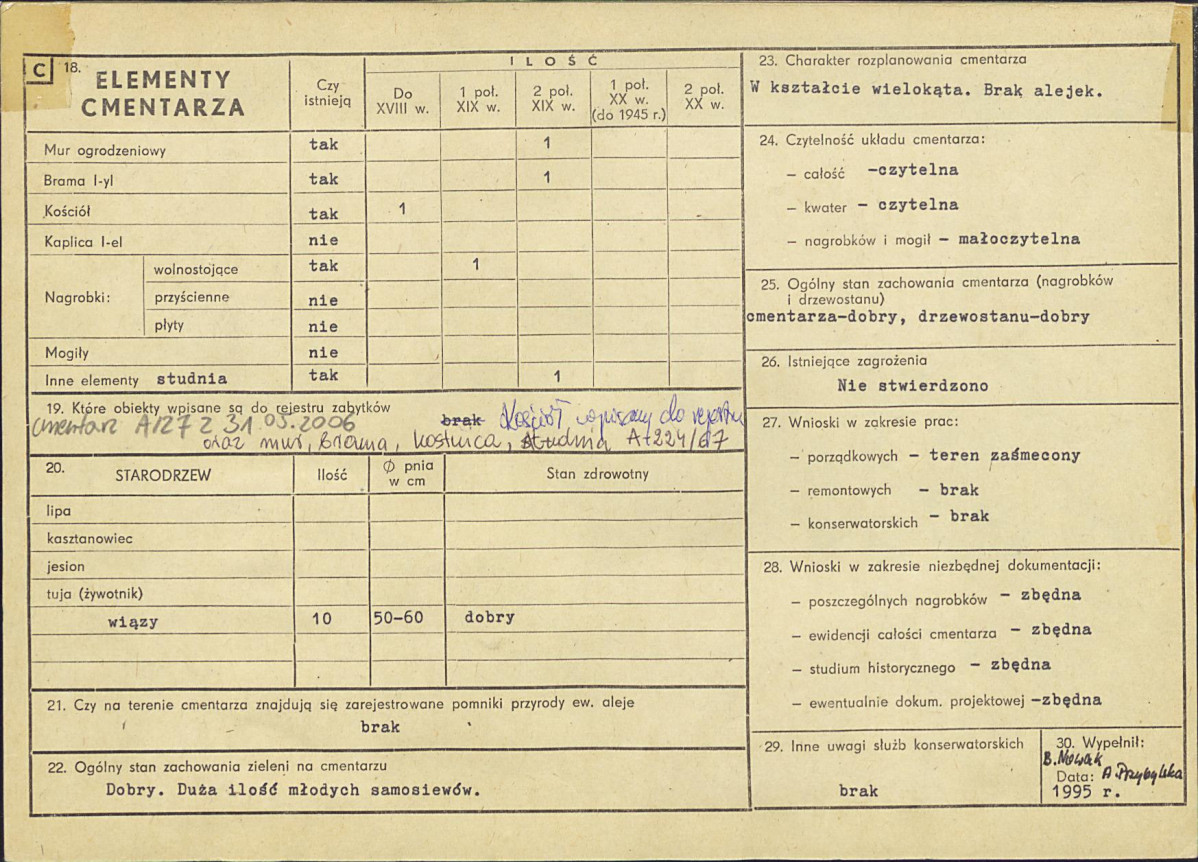 C 18. ELEMENTY CMENTARZA
Czy istnieją
ILOŚĆ
Do XVIII w.
1 poł. XIX w.
2 poł. XIX w.
1 poł. XX w. (do 1945 r.)
2 poł. XX w.
Mur ogrodzeniowy tak 1
Brama I-yl tak 1
Kościół tak 1
Kaplica I-el nie
Nagrobki: wolnostojące tak 1
przyścienne nie
płyty nie
Mogiły nie
Inne elementy studnia tak 1
19. Które obiekty wpisane są do rejestru zabytków
brak Kościół wpisany do rejestru
cmentarz A/127 z 31.05.2006
oraz mur, brama, kostnica, studnia
20. STARODRZEW Ilość Ø pnia w cm Stan zdrowotny
lipa
kasztanowiec
jesion
tuja (żywotnik)
wiązy 10 50-60 dobry
21. Czy na terenie cmentarza znajdują się zarejestrowane pomniki przyrody ew. aleje
brak
22. Ogólny stan zachowania zieleni na cmentarzu
Dobry. Duża ilość młodych samosiewów.
23. Charakter rozplanowania cmentarza
W kształcie wielokąta. Brak alejek.
24. Czytelność układu cmentarza:
— całość -czytelna
— kwater - czytelna
— nagrobków i mogił - małoczytelna
25. Ogólny stan zachowania cmentarza (nagrobków
i drzewostanu)
cmentarza-dobry, drzewostanu-dobry
26. Istniejące zagrożenia
Nie stwierdzono
27. Wnioski w zakresie prac:
— porządkowych - teren zaśmecony
— remontowych - brak
— konserwatorskich - brak
28. Wnioski w zakresie niezbędnej dokumentacji:
— poszczególnych nagrobków - zbędna
— ewidencji całości cmentarza - zbędna
— studium historycznego - zbędna
— ewentualnie dokum. projektowej -zbędna
29. Inne uwagi służb konserwatorskich
brak
30. Wypełnił:
B. Nowak
Data: A. Przybylska
1995 r.